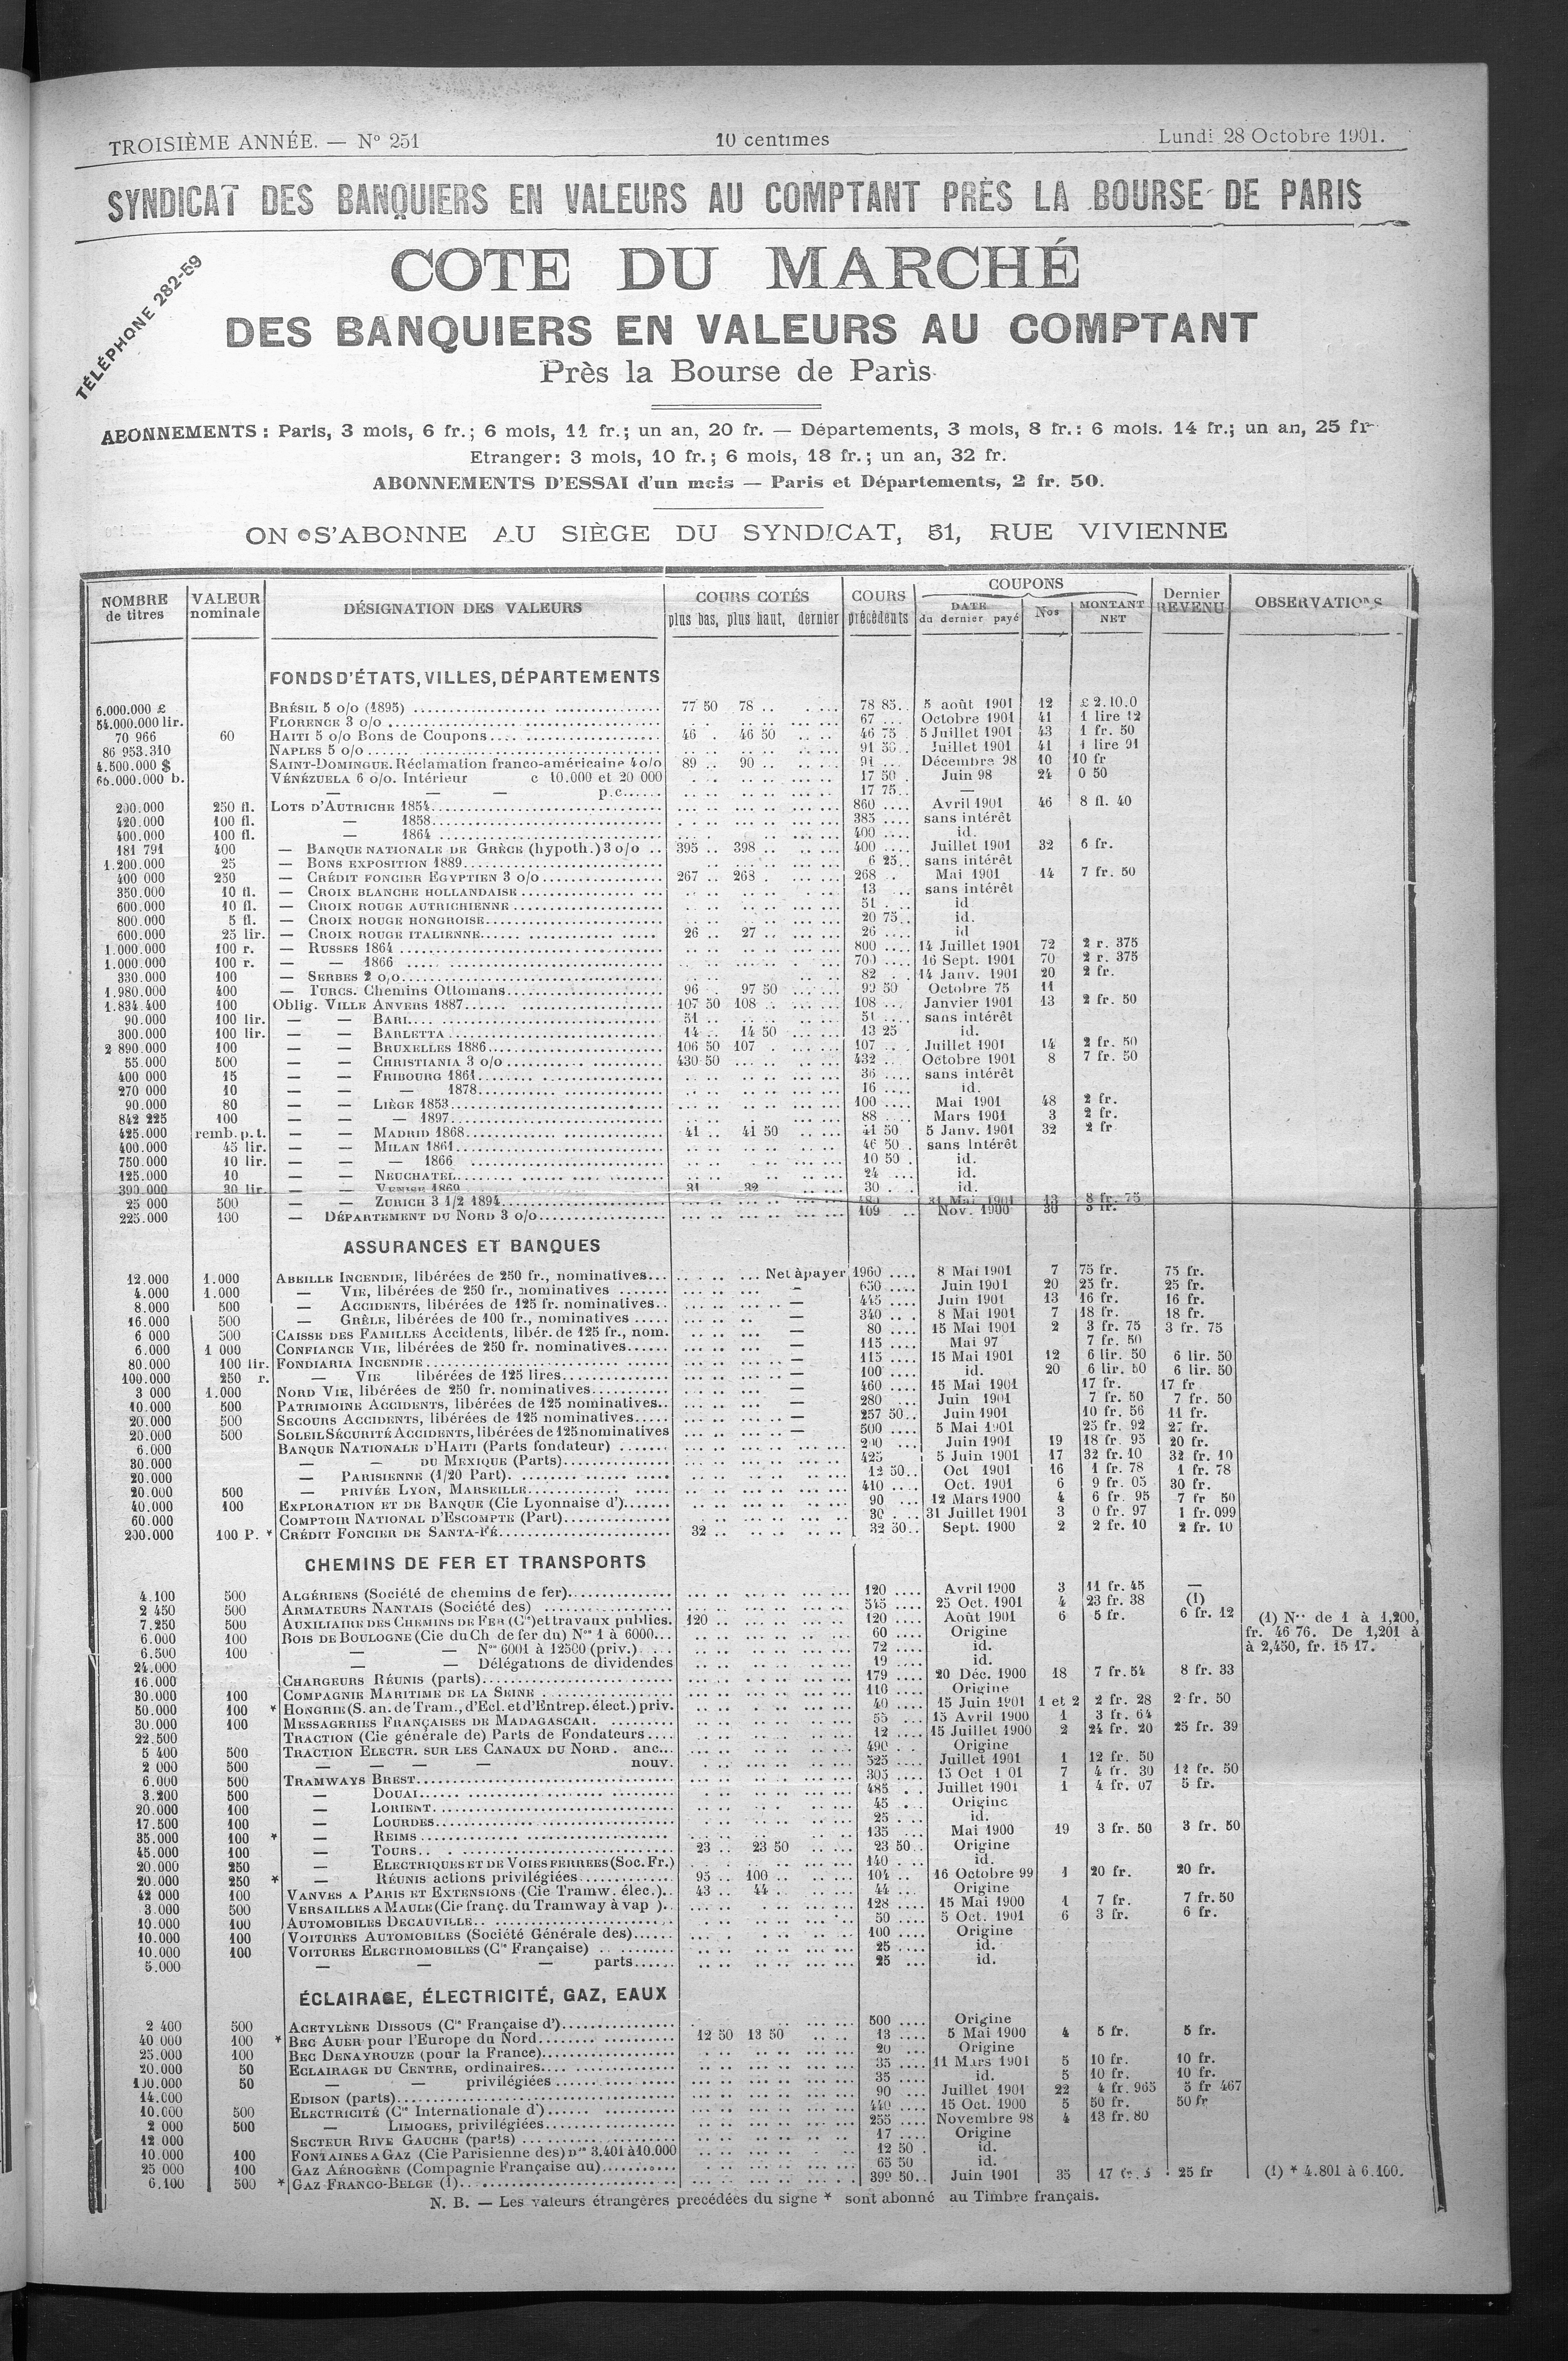 TROISIÈME ANNÉE. — N° 251 10 centimes Lundi 28 Octobre 1901.
SYNDICAT DES BANQUIERS EN VALEURS AU COMPTANT PRÈS LA BOURSE DE PARIS
TÉLÉPHONE 282-59
COTE DU MARCHÉ
DES BANQUIERS EN VALEURS AU COMPTANT
Près la Bourse de Paris
ABONNEMENTS : Paris, 3 mois, 6 fr.; 6 mois, 11 fr.; un an, 20 fr. — Départements, 3 mois, 8 fr.: 6 mois. 14 fr.; un an, 25 fr
Etranger: 3 mois, 10 fr.; 6 mois, 18 fr.; un an, 32 fr.
ABONNEMENTS D'ESSAI d'un mois — Paris et Départements, 2 fr. 50.
ON S'ABONNE AU SIÈGE DU SYNDICAT, 31, RUE VIVIENNE
NOMBRE de titres VALEUR nominale DÉSIGNATION DES VALEURS COURS COTÉS plus bas, plus haut, dernier COURS précédents COUPONS DATE du dernier payé Nos MONTANT NET Dernier REVENU OBSERVATIONS
FONDS D'ÉTATS, VILLES, DÉPARTEMENTS
6.000.000 £ BRÉSIL 5 o/o (1895) 77 50 78 .. 78 85 5 août 1901 12 £ 2.10.0
54.000.000 lir. FLORENCE 3 o/o 67 Octobre 1901 41 1 lire 12
70 966 60 HAITI 5 o/o Bons de Coupons 46 . 46 50 46 75 5 Juillet 1901 43 1 fr. 50
86 953.310 NAPLES 5 o/o 91 50 Juillet 1901 41 1 lire 91
4.500.000 $ SAINT-DOMINGUE. Réclamation franco-américaine 4 o/o 89 .. 90 .. 91 Décembre 98 10 10 fr
66.000.000 b. VÉNÉZUELA 6 o/o. Intérieur c 10.000 et 20 000 17 50 Juin 98 24 0 50
— — — p.c. 17 75 —
200.000 250 fl. LOTS D'AUTRICHE 1854 860 Avril 1901 46 8 fl. 40
420.000 100 fl. — 1858 385 sans intérêt
400.000 100 fl. — 1864 400 id.
181 791 400 — BANQUE NATIONALE DE GRÈCE (hypoth.) 3 o/o 395 .. 398 .. 400 Juillet 1901 32 6 fr.
1.200.000 25 — BONS EXPOSITION 1889 6 25 sans intérêt
400 000 250 — CRÉDIT FONCIER EGYPTIEN 3 o/o 267 .. 268 . 268 Mai 1901 14 7 fr. 50
350.000 10 fl. — CROIX BLANCHE HOLLANDAISE 13 sans intérêt
600.000 10 fl. — CROIX ROUGE AUTRICHIENNE 51 id
800.000 5 fl. — CROIX ROUGE HONGROISE 20 75 id.
600.000 25 lir. — CROIX ROUGE ITALIENNE 26 .. 27 .. 26 id
1.000.000 100 r. — RUSSES 1864 800 14 Juillet 1901 72 2 r. 375
1.000.000 100 r. — — 1866 700 16 Sept. 1901 70 2 r. 375
330.000 100 — SERBES 2 o/o 82 14 Janv. 1901 20 2 fr.
1.980.000 400 — TURCS. Chemins Ottomans 96 . 97 50 99 50 Octobre 75 11
1.834.400 100 Oblig. VILLE ANVERS 1887 107 50 108 108 Janvier 1901 13 2 fr. 50
90.000 100 lir. — — BARI 51 .. 51 sans intérêt
300.000 100 lir. — — BARLETTA 14 .. 14 50 13 25 id.
2 890.000 100 — — BRUXELLES 1886 106 50 107 . 107 Juillet 1901 14 2 fr. 50
55.000 500 — — CHRISTIANIA 3 o/o 430 50 432 Octobre 1901 8 7 fr. 50
400 000 15 — — FRIBOURG 1861 36 sans intérêt
270 000 10 — — — 1878 16 id.
90.000 80 — — LIÈGE 1853 100 Mai 1901 48 2 fr.
842 225 100 — — — 1897 88 Mars 1901 3 2 fr.
425.000 remb. p. t. — — MADRID 1868 41 .. 41 50 41 50 5 Janv. 1901 32 2 fr
400.000 45 lir. — — MILAN 1861 46 50 sans Intérêt
750.000 10 lir. — — — 1866 10 50 id.
125.000 10 — — NEUCHATEL 24 id.
390.000 30 lir. — — VENISE 1869 31 32 30 id.
25 000 500 — — ZURICH 3 1/2 1894 480 31 Mai 1901 13 8 fr. 75
225.000 100 — DÉPARTEMENT DU NORD 3 o/o 109 Nov. 1900 30 3 fr.
ASSURANCES ET BANQUES
12.000 1.000 ABEILLE INCENDIE, libérées de 250 fr., nominatives Net à payer 1960 8 Mai 1901 7 75 fr. 75 fr.
4.000 1.000 — VIE, libérées de 250 fr., nominatives — 650 Juin 1901 20 25 fr. 25 fr.
8.000 500 — ACCIDENTS, libérées de 125 fr. nominatives — 445 Juin 1901 13 16 fr. 16 fr.
16.000 500 — GRÊLE, libérées de 100 fr., nominatives — 340 8 Mai 1901 7 18 fr. 18 fr.
6 000 500 CAISSE DES FAMILLES Accidents, libér. de 125 fr., nom. — 80 15 Mai 1901 2 3 fr. 75 3 fr. 75
6.000 1 000 CONFIANCE VIE, libérées de 250 fr. nominatives — 115 Mai 97 7 fr. 50
80.000 100 lir. FONDIARIA INCENDIE — 115 15 Mai 1901 12 6 lir. 50 6 lir. 50
100.000 250 r. — VIE libérées de 125 lires — 100 id. 20 6 lir. 50 6 lir. 50
3 000 1.000 NORD VIE, libérées de 250 fr. nominatives — 460 15 Mai 1901 17 fr. 17 fr
10.000 500 PATRIMOINE ACCIDENTS, libérées de 125 nominatives — 280 Juin 1901 7 fr. 50 7 fr. 50
20.000 500 SECOURS ACCIDENTS, libérées de 125 nominatives — 257 50 Juin 1901 10 fr. 56 11 fr.
20.000 500 SOLEIL SÉCURITÉ ACCIDENTS, libérées de 125 nominatives — 500 5 Mai 1901 25 fr. 92 27 fr.
6.000 BANQUE NATIONALE D'HAITI (Parts fondateur) 200 Juin 1901 19 18 fr. 95 20 fr.
30.000 — — DU MEXIQUE (Parts) 425 5 Juin 1901 17 32 fr. 10 32 fr. 10
20.000 — PARISIENNE (1/20 Part) 12 50 Oct 1901 16 1 fr. 78 1 fr. 78
20.000 500 — PRIVÉE LYON, MARSEILLE 410 Oct. 1901 6 9 fr. 05 30 fr.
40.000 100 EXPLORATION ET DE BANQUE (Cie Lyonnaise d') 90 12 Mars 1900 4 6 fr. 95 7 fr 50
60.000 COMPTOIR NATIONAL D'ESCOMPTE (Part) 30 31 Juillet 1901 3 0 fr. 97 1 fr. 099
200.000 100 P. * CRÉDIT FONCIER DE SANTA-FÉ 32 .. 32 50 Sept. 1900 2 2 fr. 10 2 fr. 10
CHEMINS DE FER ET TRANSPORTS
4.100 500 ALGÉRIENS (Société de chemins de fer) 120 Avril 1900 3 11 fr. 45 —
2 450 500 ARMATEURS NANTAIS (Société des) 545 25 Oct. 1901 4 23 fr. 38 (1)
7.250 500 AUXILIAIRE DES CHEMINS DE FER (Cie) et travaux publics. 120 .. 120 Août 1901 6 5 fr. 6 fr. 12
(1) Nos de 1 à 1,200, fr. 46 76. De 1,201 à
à 2,450, fr. 15 17.
6.000 100 BOIS DE BOULOGNE (Cie du Ch de fer du) Nos 1 à 6000 60 Origine
6.500 100 — — Nos 6001 à 12500 (priv.) 72 id.
24.000 — — Délégations de dividendes 19 id.
16.000 CHARGEURS RÉUNIS (parts) 179 20 Déc. 1900 18 7 fr. 54 8 fr. 33
30.000 100 COMPAGNIE MARITIME DE LA SEINE 110 Origine
50.000 100 * HONGRIE (S. an. de Tram., d'Ecl. et d'Entrep. élect.) priv. 40 15 Juin 1901 1 et 2 2 fr. 28 2 fr. 50
30.000 100 MESSAGERIES FRANÇAISES DE MADAGASCAR. 55 15 Avril 1900 1 3 fr. 64
22.500 TRACTION (Cie générale de) Parts de Fondateurs 12 15 Juillet 1900 2 24 fr. 20 25 fr. 39
5 400 500 TRACTION ELECTR. SUR LES CANAUX DU NORD. anc. 490 Origine
2 000 500 — — — — nouv. 525 Juillet 1901 1 12 fr. 50
6.000 500 TRAMWAYS BREST 305 15 Oct 1 01 7 4 fr. 30 12 fr. 50
3.200 500 — DOUAI 485 Juillet 1901 1 4 fr. 07 5 fr.
20.000 100 — LORIENT 45 Origine
17.500 100 — LOURDES 25 id.
35.000 100 * — REIMS 135 Mai 1900 19 3 fr. 50 3 fr. 50
45.000 100 — TOURS 23 .. 23 50 23 50 Origine
20.000 250 — ELECTRIQUES ET DE VOIES FERREES (Soc. Fr.) 140 id.
20.000 250 * — RÉUNIS actions privilégiées 95 .. 100 .. 104 16 Octobre 99 1 20 fr. 20 fr.
42 000 100 VANVES A PARIS ET EXTENSIONS (Cie Tramw. élec.) 43 .. 44 .. 44 Origine
3.000 500 VERSAILLES A MAULE (Cie franç. du Tramway à vap ) 128 15 Mai 1900 1 7 fr. 7 fr. 50
10.000 100 AUTOMOBILES DECAUVILLE 50 5 Oct. 1901 6 3 fr. 6 fr.
10.000 100 VOITURES AUTOMOBILES (Société Générale des) 100 Origine
10.000 100 VOITURES ELECTROMOBILES (Cie Française) 25 id.
5.000 — — — parts 25 id.
ÉCLAIRAGE, ÉLECTRICITÉ, GAZ, EAUX
2 400 500 ACETYLÈNE DISSOUS (Cie Française d') 500 Origine
40 000 100 * BEC AUER pour l'Europe du Nord 12 50 13 50 13 5 Mai 1900 4 5 fr. 5 fr.
25.000 100 BEC DENAYROUZE (pour la France) 20 Origine
20.000 50 ECLAIRAGE DU CENTRE, ordinaires 35 11 Mars 1901 5 10 fr. 10 fr.
100.000 50 — — privilégiées 35 id. 5 10 fr. 10 fr.
14.000 EDISON (parts) 90 Juillet 1901 22 4 fr. 965 5 fr 467
10.000 500 ELECTRICITÉ (Cie Internationale d') 440 15 Oct. 1900 5 50 fr. 50 fr
2 000 500 — LIMOGES, privilégiées 255 Novembre 98 4 13 fr. 80
12.000 SECTEUR RIVE GAUCHE (parts) 17 Origine
10.000 100 FONTAINES A GAZ (Cie Parisienne des) nos 3.401 à 10.000 12 50 id.
25 000 100 GAZ AÉROGÈNE (Compagnie Française du) 65 50 id.
6.100 500 * GAZ FRANCO-BELGE (1) 399 50 Juin 1901 35 17 fr. 25 fr (1) * 4.801 à 6.100.
N. B. — Les valeurs étrangères precédées du signe * sont abonné au Timbre français.